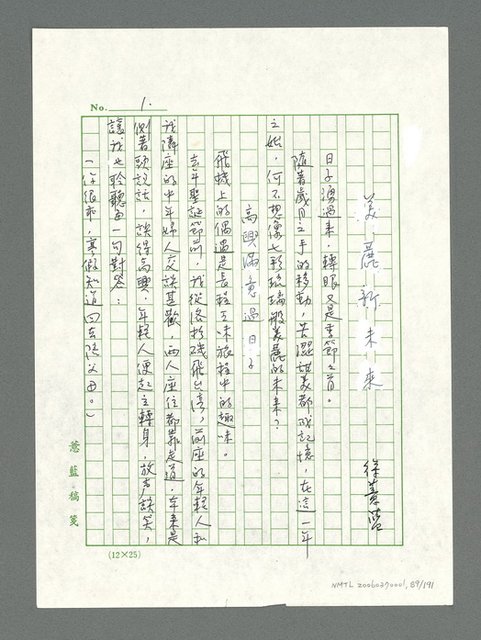 No. 1.
美麗新未來
徐薏藍
日子湧過來，轉眼又是季節之首。
隨著歲月之手的移動，苦澀甜美都成記憶，在這一年
之始，何不想像七彩琉璃般美麗的未來？
高興滿意過日子
飛機上的偶遇是長程乏味旅程中的趣味。
去年聖誕節前，我從洛杉磯飛台灣，前座的年輕人和
我隣座的中年婦人交談甚歡，兩人座位都靠走道，本來是
側著頭說話，談得高興，年輕人便起立轉身，放聲談笑，
讓我也聆聽每一句對答：
「你很乖，寒假知道回去陪父母。」
薏藍稿箋
(12×25)
NMTL 20060370001, 89/191